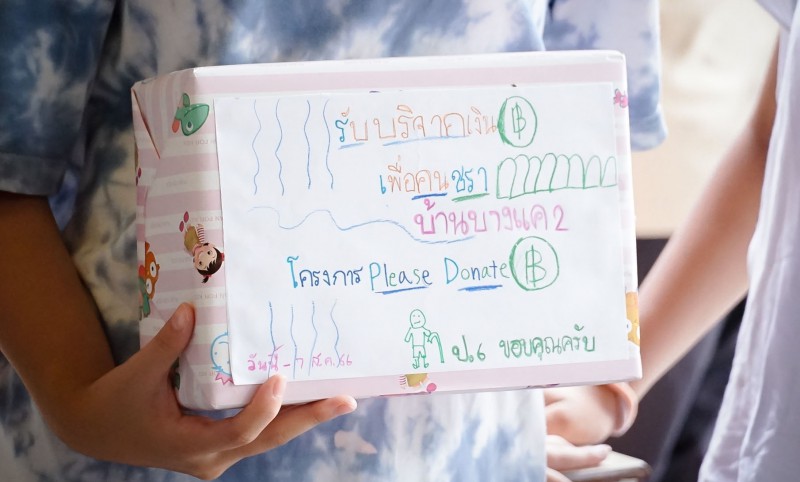 รับบริจาคเงิน ฿
เพื่อคนชรา
บ้านบางแค 2
โครงการ Please Donate ฿
ป.6 ขอบคุณครับ
วันนี้ - 7 ส.ค. 66